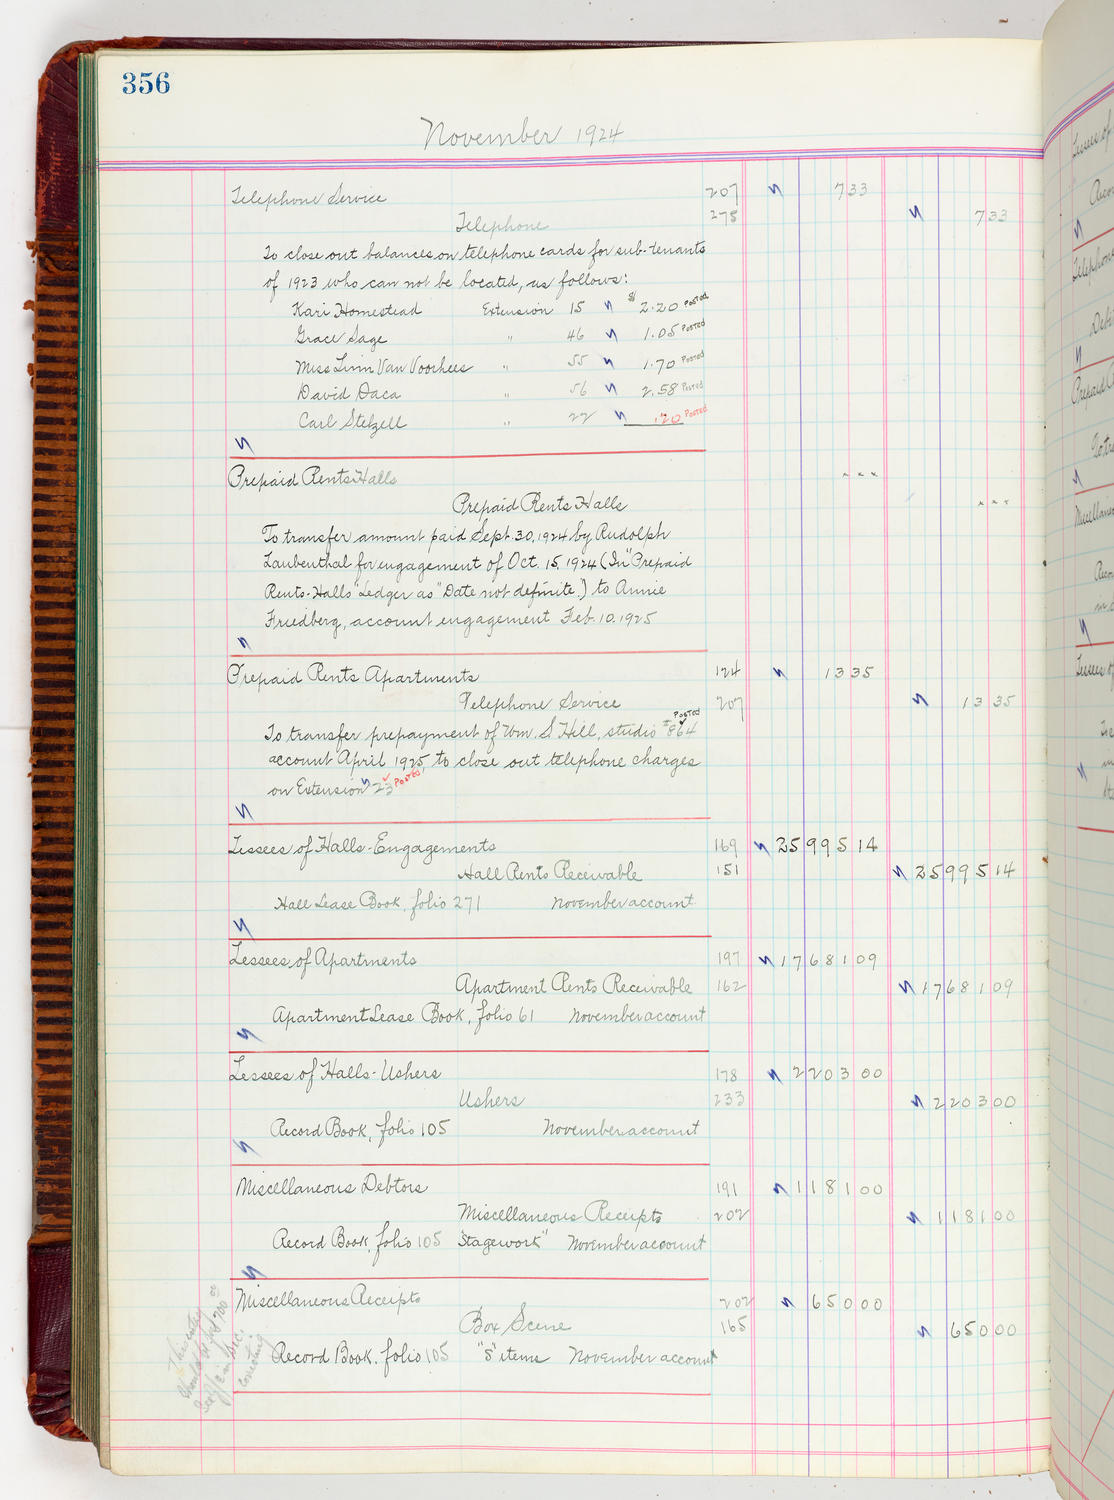 356
November 1924
Telephone Service 207 7 33
Telephone 278 7 33
To close out balances on telephone cards for sub-tenants
of 1923 who can not be located, as follows:
Kari Homestead Extension 15 $ 2.20 POSTED
Grace Sage " 46 1.05 POSTED
Miss Linn Van Voorhees " 55 1.70 POSTED
David Daca " 56 2.58 POSTED
Carl Stelzell " 22 .20 POSTED
Prepaid Rents Halls x x x
Prepaid Rents Halls x x x
To transfer amount paid Sept. 30, 1924 by Rudolph
Laubenthal for engagement of Oct. 15, 1924 (In "Prepaid
Rents-Halls" Ledger as "Date not definite") to Annie
Friedberg, account engagement Feb. 10, 1925
Prepaid Rents Apartments 124 13 35
Telephone Service 207 13 35
POSTED
To transfer prepayment of Wm. S Hill, studio #864
account April 1925, to close out telephone charges
on Extension 23 POSTED
Lessees of Halls-Engagements 169 25995 14
Hall Rents Receivable 151 25995 14
Hall Lease Book, folio 271 November account
Lessees of Apartments 197 17681 09
Apartment Rents Receivable 162 17681 09
Apartment Lease Book, folio 61 November account
Lessees of Halls-Ushers 178 2203 00
Ushers 233 2203 00
Record Book, folio 105 November account
Miscellaneous Debtors 191 1181 00
Miscellaneous Receipts 202 1181 00
Record Book, folio 105 "Stagework" November account
Miscellaneous Receipts 202 650 00
Box Scene 165 650 00
Record Book, folio 105 "S" items November account
This entry
should be for 700 00
See J/E in Dec.
correcting